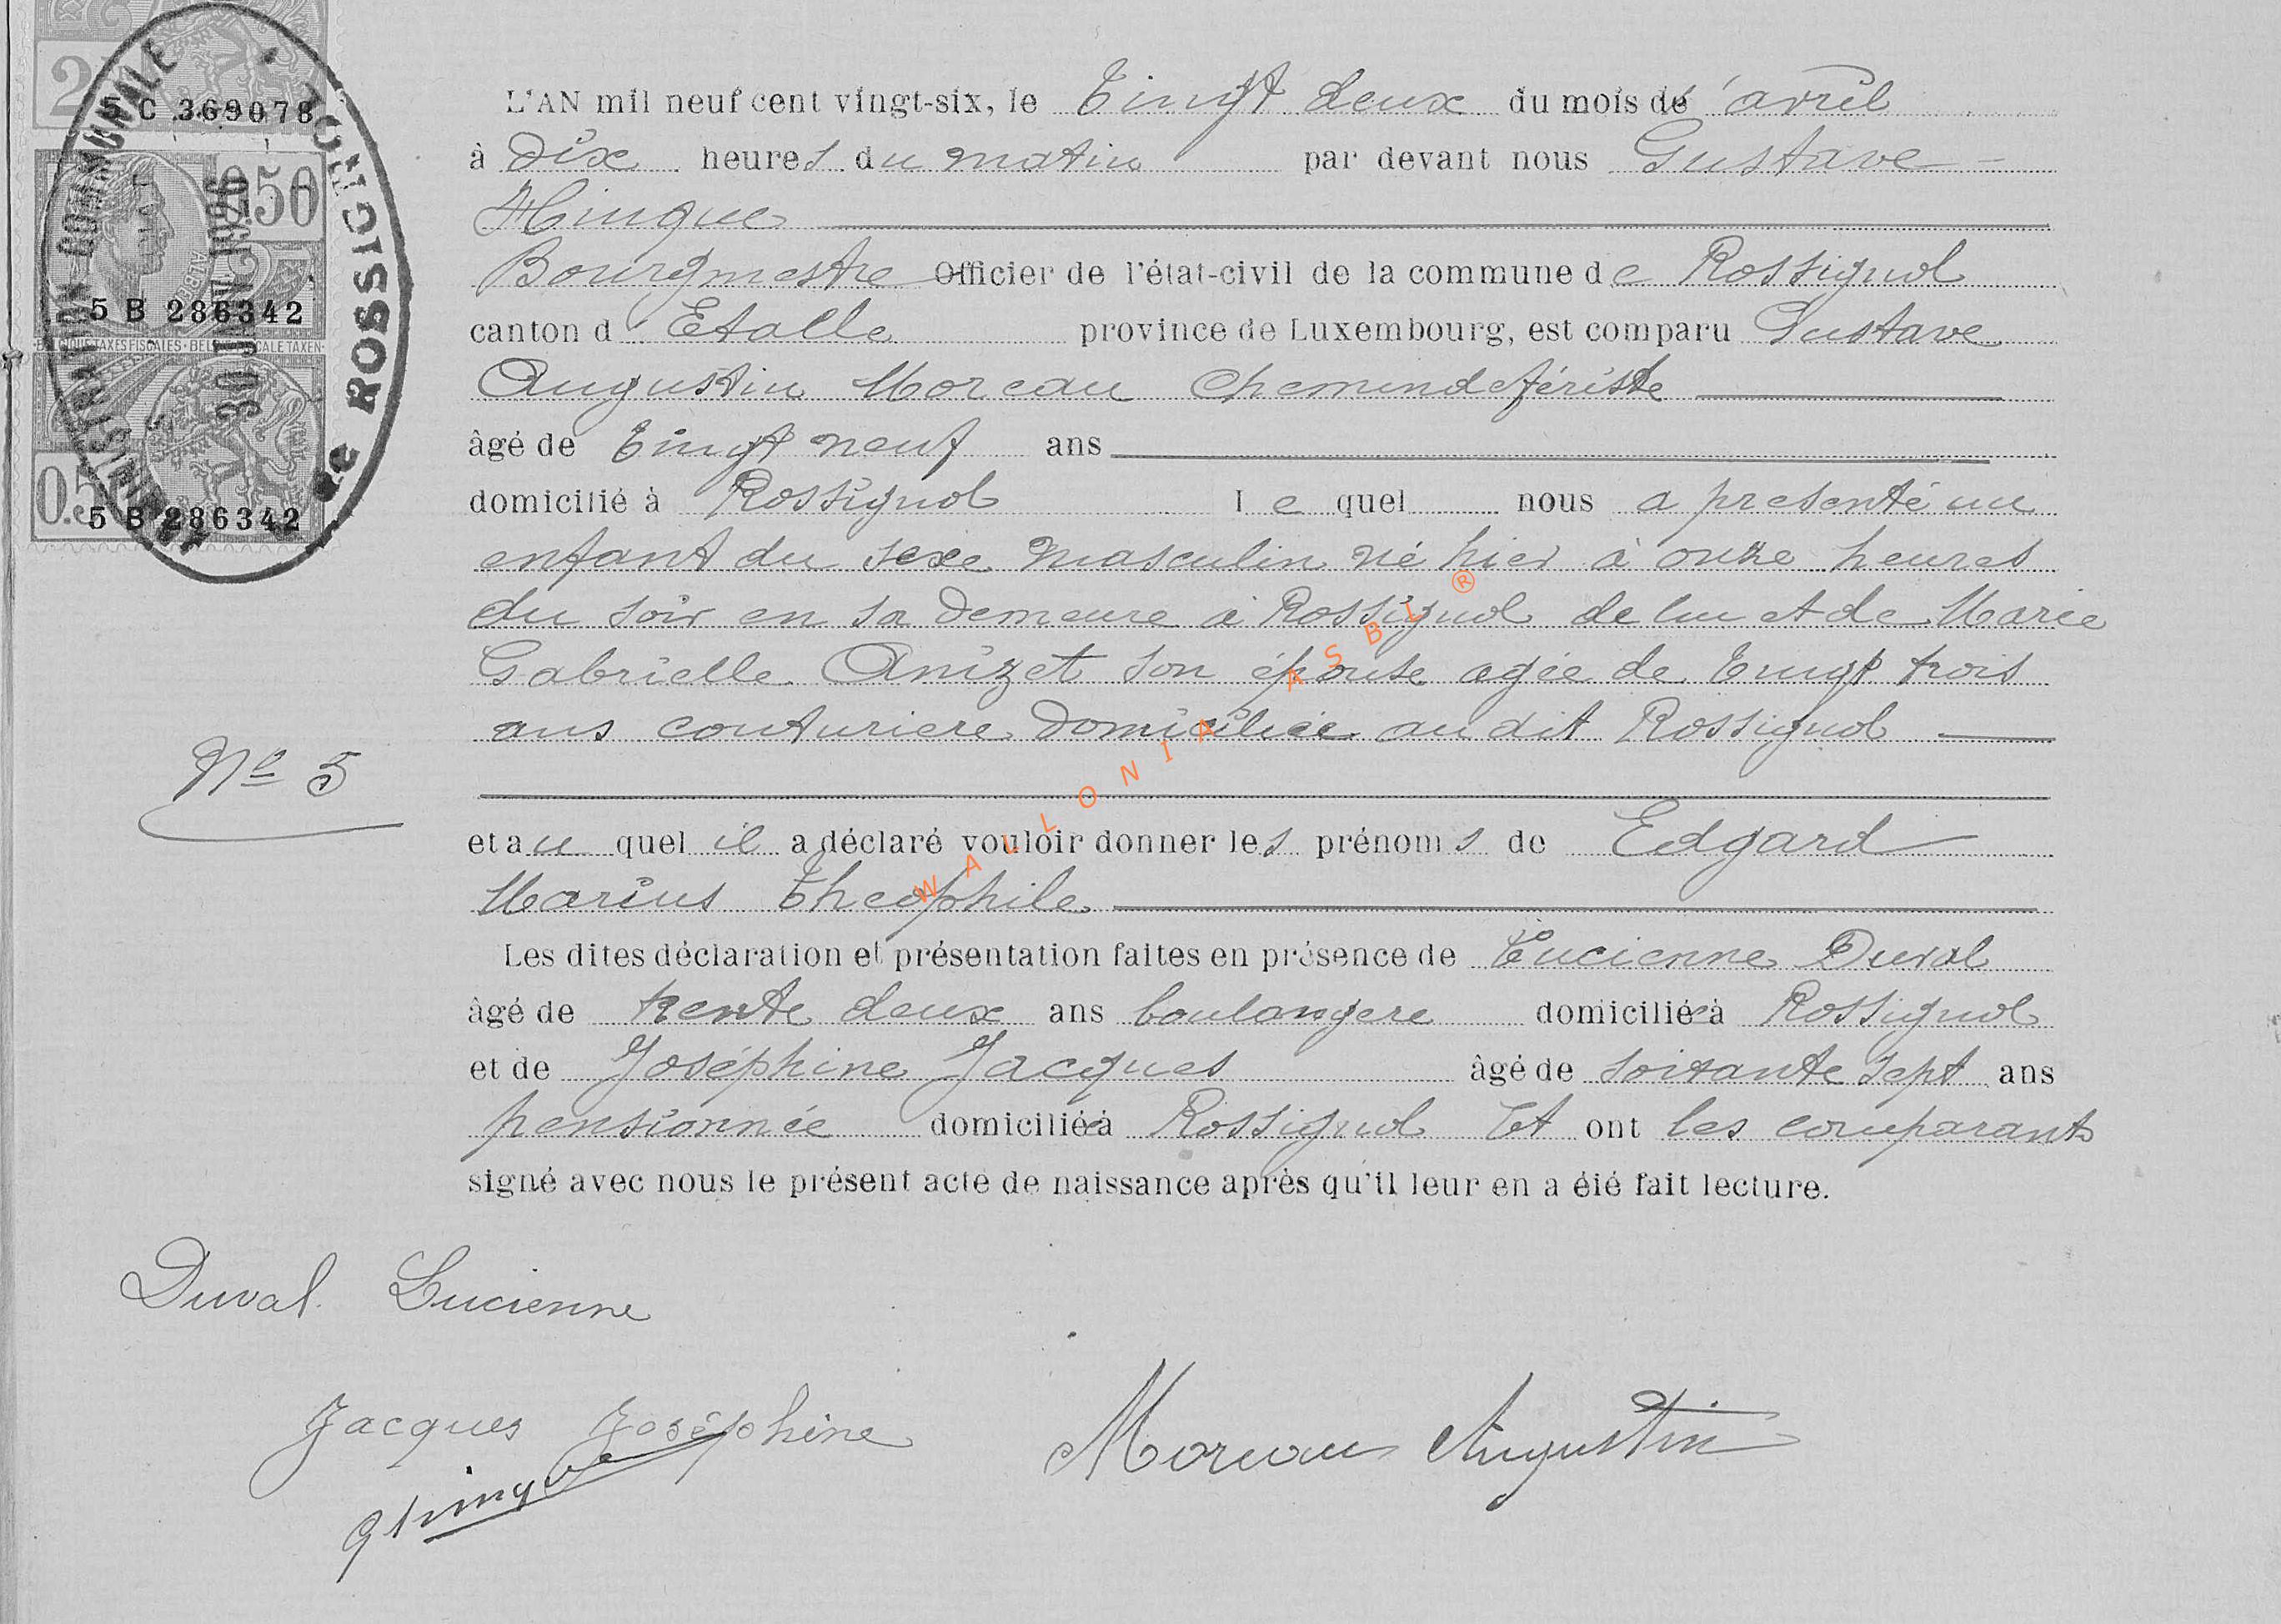 2
5 C 369078
0.50
ALBERT
5 B 286342
BELGIQUE TAXES FISCALES · BELGIË FISCALE TAXEN
0.5
5 B 286342
ADMINISTRATION COMMUNALE
de ROSSIGNOL
L'AN mil neuf cent vingt-six, le Vingt deux du mois de avril
à dix heures du matin par devant nous Gustave
Hinque
Bourgmestre Officier de l'état-civil de la commune de Rossignol
canton d'Etalle province de Luxembourg, est comparu Gustave
Augustin Moreau Chemindefériste
âgé de Vingt neuf ans
domicilié à Rossignol lequel nous a presenté un
enfant du sexe masculin né hier à onze heures
du soir en sa demeure à Rossignol de lui et de Marie
Gabrielle Anizet son épouse agée de Vingt trois
ans couturiere domiciliée au dit Rossignol
No 5
et au quel il a déclaré vouloir donner les prénoms de Edgard
Marius Theophile
Les dites déclaration et présentation faites en présence de Lucienne Duval
âgé de trente deux ans boulangere domiciliée à Rossignol
et de Joséphine Jacques âgé de soixante sept ans
pensionnée domiciliée à Rossignol Et ont les comparants
signé avec nous le présent acte de naissance après qu'il leur en a été fait lecture.
Duval Lucienne
Jacques Joséphine
Moreau Augustin
GHinque
WALLONIA ASBL ®